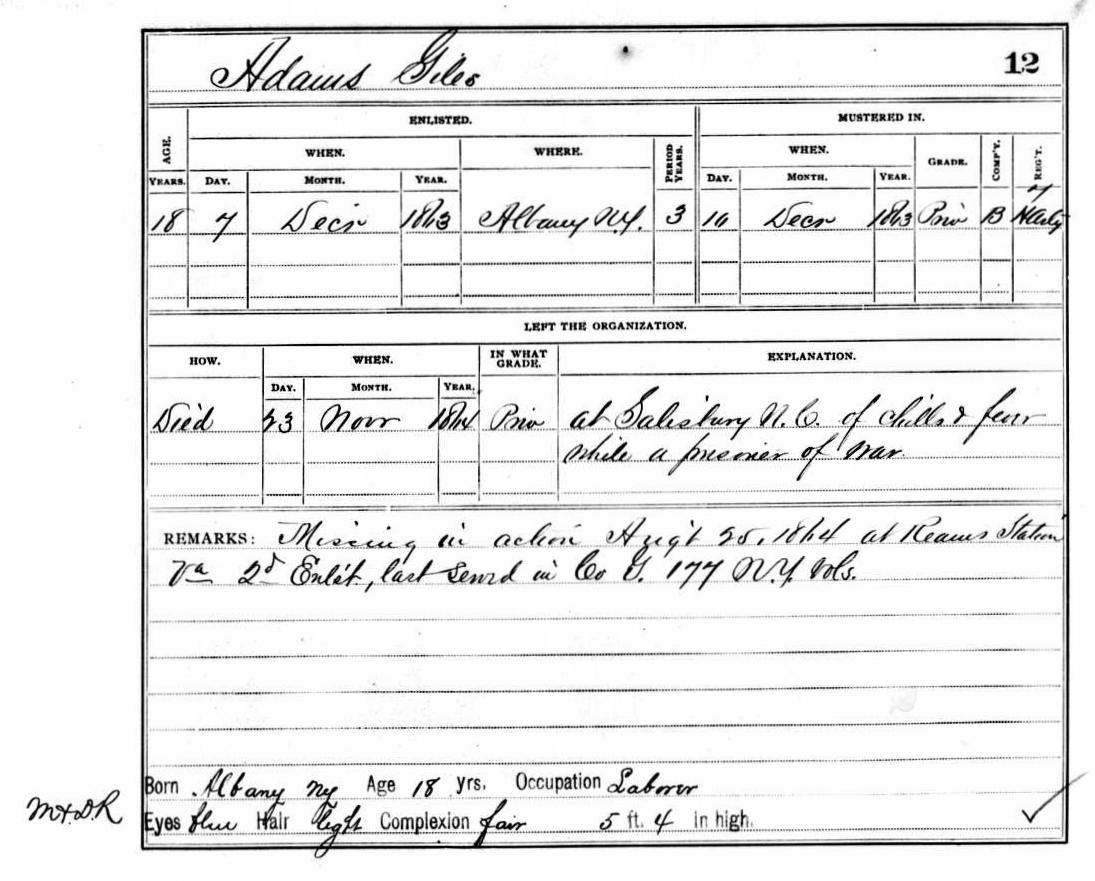 Adams Giles 12
ENLISTED. MUSTERED IN.
AGE. WHEN. WHERE. PERIOD YEARS. WHEN. GRADE. COMP'Y. REG'T.
YEARS. DAY. MONTH. YEAR. DAY. MONTH. YEAR.
7
18 7 Decr 1863 Albany N.Y. 3 Decr 1863 Priv B H Arty
LEFT THE ORGANIZATION.
HOW. WHEN. IN WHAT GRADE. EXPLANATION.
DAY. MONTH. YEAR.
Died 23 Novr 1864 Priv at Salisbury N.C. of chills & fever
while a prisoner of war
REMARKS: Missing in action Augt 25, 1864 at Reams Station
Va 2d Enlst, last served in Co G. 177 N.Y. Vols.
Born Albany Ny Age 18 yrs. Occupation Laborer
M.&D.R Eyes blue Hair light Complexion fair 5 ft. 4 in high.